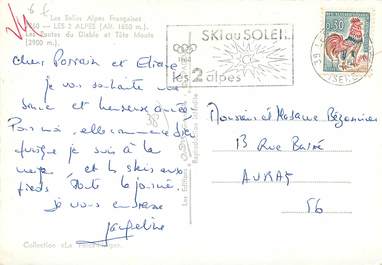 Les Belles Alpes Françaises
LES 2 ALPES (Alt. 1650 m.)
Les Pentes du Diable et Tête Moute
(2900 m.)
SKI au SOLEIL
les 2 alpes
0,50
38 LES
ISÈRE
Cher Parrain et Eliane
je vous souhaite une
bonne et heureuse année
Pour moi, elle commence bien
puisque je suis à la
neige et les skis aux
pieds toute la journée.
je vous embrasse
Jacqueline
Monsieur et Madame
13 Rue Barré
AURAY
56
Les Editions
Reproduction interdite
Collection «La